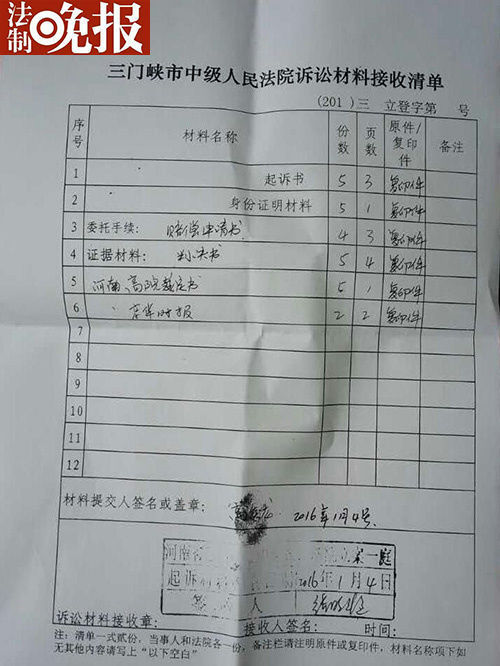 法制晚报
三门峡市中级人民法院诉讼材料接收清单
(201 )三 立登字第 号
序号 材料名称 份数 页数 原件/复印件 备注
1 起诉书 5 3 复印件
2 身份证明材料 5 1 复印件
3 委托手续: 赔偿申请书 4 3 复印件
4 证据材料: 判决书 5 4 复印件
5 河南高院裁定书 5 1 复印件
6 2 2 复印件
7
8
9
10
11
12
材料提交人签名或盖章: 2016年1月4号.
河南省 一庭
起诉 2016年1月4日
签 人
诉讼材料接收章: 接收人签名: 时间:
注:清单一式贰份,当事人和法院各一份,备注栏请注明原件或复印件,材料名称项下如
无其他内容请写上“以下空白”